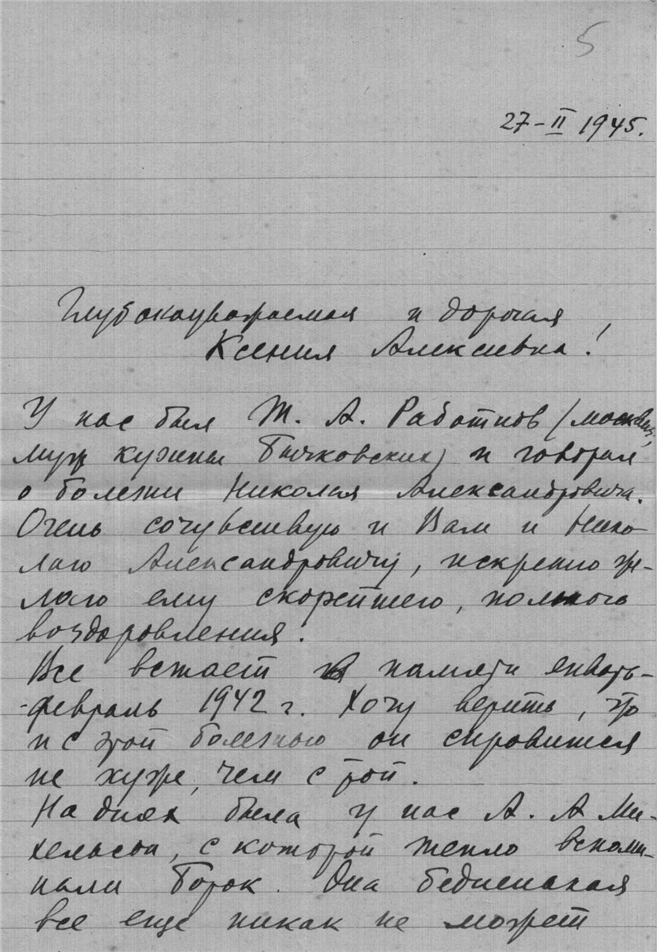 5
27-II 1945.
Глубокоуважаемая и дорогая
Ксения Алексеевна!
У нас был Т. А. Работнов (москвич,
муж кузины Бычковских) и говорил
о болезни Николая Александровича.
Очень сочувствую и Вам и Нико-
лаю Александровичу, искренно же-
лаю ему скорейшего, полного
выздоровления.
Все встает в памяти январь-
февраль 1942 г. Хочу верить, что
и с этой болезнью он справится
не хуже, чем с той.
На днях была у нас А. А. Ми-
хельсон, с которой тепло вспоми-
нали Борок. Она бедненькая
все еще никак не может